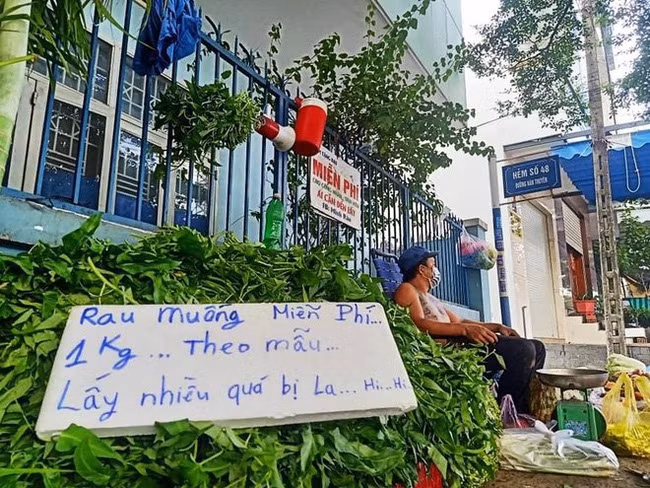 Rau muống Miễn Phí...
1 Kg... Theo mẫu...
Lấy nhiều quá bị La... Hi...Hi.
MIỄN PHÍ
AI CẦN ĐẾN LẤY
HẺM SỐ 48